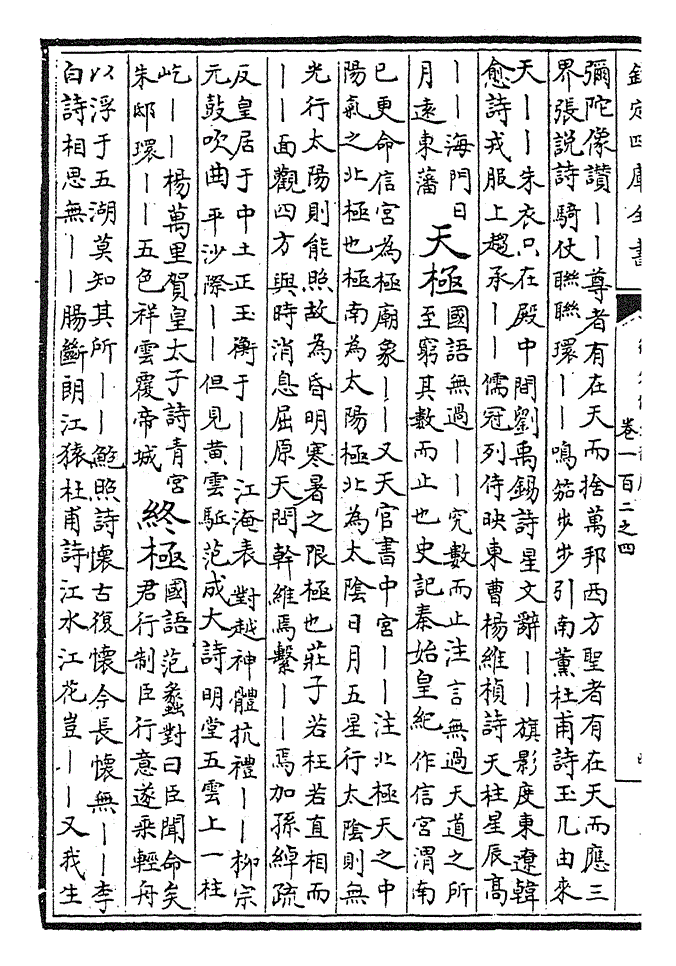 欽定四庫全書
卷一百二之四
彌陀像讚——尊者有在天而捨萬邦西方聖者有在天而應三
界張說詩騎仗聯聯環——鳴笳步步引南薰杜甫詩玉几由來
天——朱衣只在殿中間劉禹錫詩星文辭——旗影度東遼韓
愈詩戎服上趨承——儒冠列侍映東曹楊維楨詩天柱星辰高
——海門日
月遠東藩
天極
國語無過——究數而止注言無過天道之所
至窮其數而止也史記秦始皇紀作信宮渭南
已更命信宮為極廟象——又天官書中宮——注北極天之中
陽氣之北極也極南為太陽極北為太陰日月五星行太陰則無
光行太陽則能照故為昏明寒暑之限極也莊子若枉若直相而
——面觀四方與時消息屈原天問幹維焉繫——焉加孫綽疏
反皇居于中土正玉衡于——江淹表對越神體抗禮——柳宗
元鼓吹曲平沙際——但見黃雲駈范成大詩明堂五雲上一柱
屹——楊萬里賀皇太子詩青宮
朱邸環——五色祥雲覆帝城
終極
國語范蠡對曰臣聞命矣
君行制臣行意遂乘輕舟
以浮于五湖莫知其所——鮑照詩懷古復懷今長懷無——李
白詩相思無——腸斷朗江猿杜甫詩江水江花豈——又我生